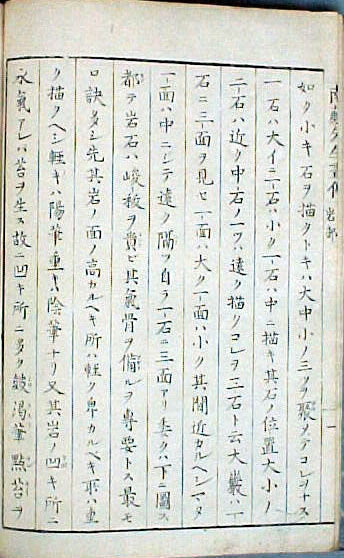 如ク小キ石ヲ描クトキハ大中小ノ三ツヲ聚メテコレヲナス
一石ハ大イニ一石ハ小ク一石ハ中ニ描キ其石ノ位置大小ノ
二石ハ近ク中石ノ一ツハ遠ク描クコレヲ三石ト云大巖ハ一
石ニ三面ヲ見セ一面ハ大ク一面ハ小ク其間近カルヘシマタ
一面ハ中ニシテ遠ノ隔ツ自ラ一石ニ三面アリ委クハ下ニ圖ス
都テ岩石ハ峻秡ヲ貴ヒ其氣骨ヲ備ルヲ專要トス最モ
口訣多シ先其岩ノ面ノ高カルヘキ所ハ軽ク卑カルヘキ所ハ重
ク描クヘシ軽キハ陽筆重キハ陰筆ナリ又其岩ノ凹キ所ニ
水氣アレハ苔ヲ生ス故ニ凹キ所ニ多ク皴渇筆點苔ヲ